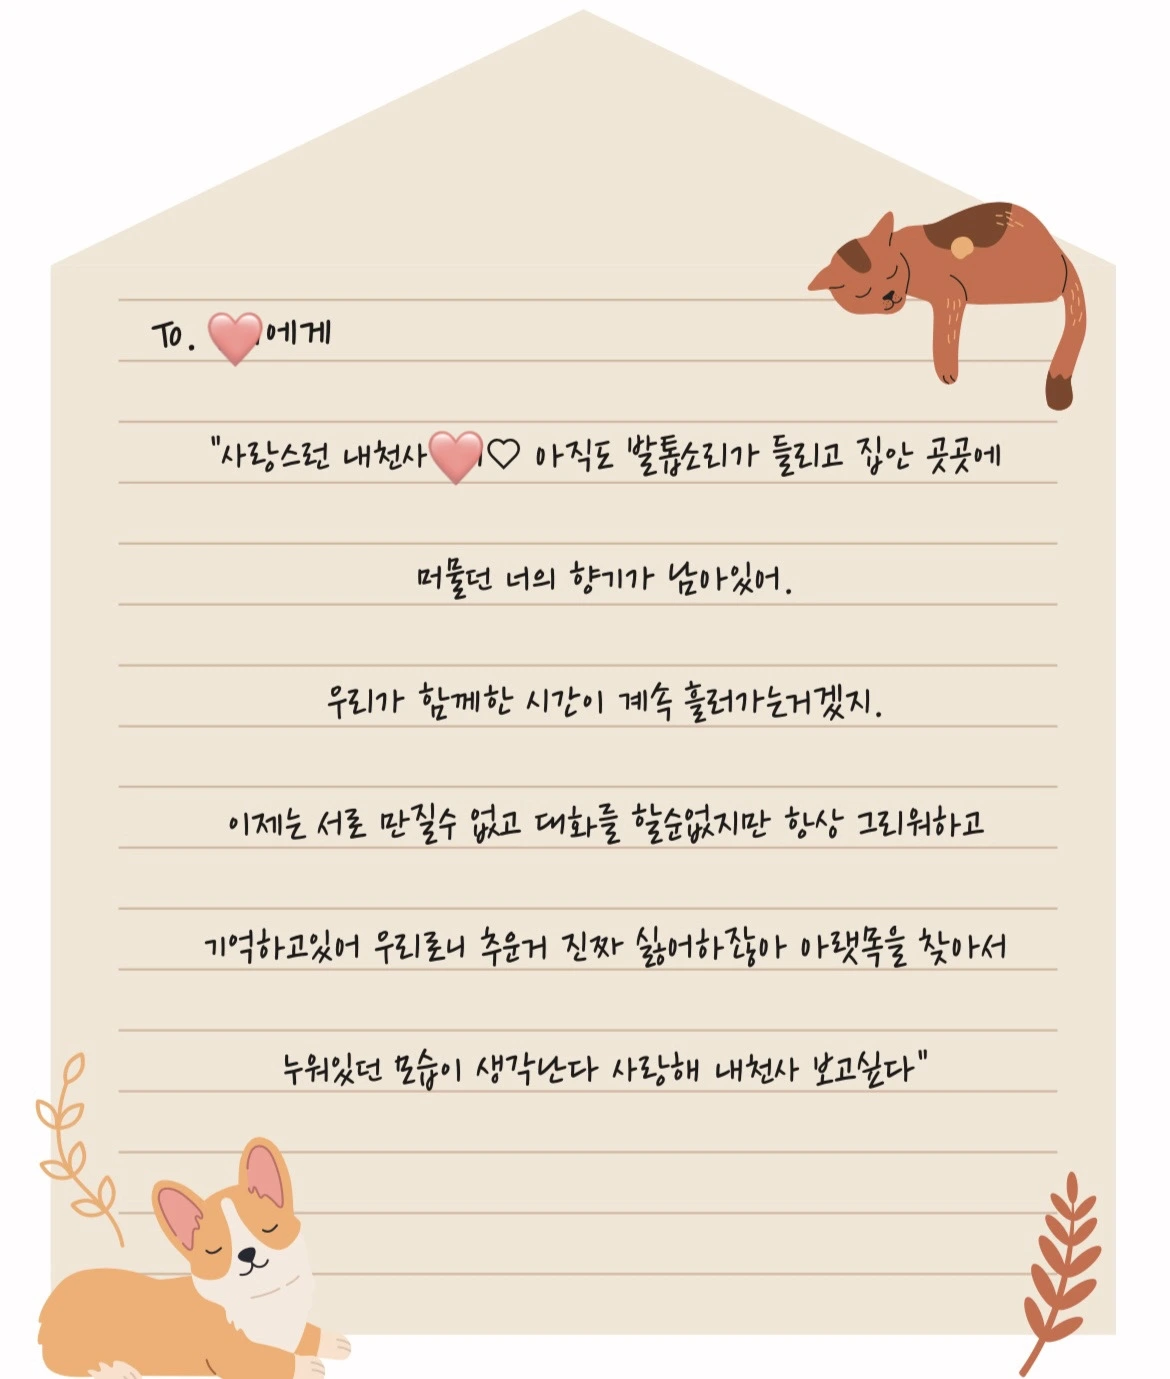 To. 에게
"사랑스런 내천사♡ 아직도 발톱소리가 들리고 집안 곳곳에
머물던 너의 향기가 남아있어.
우리가 함께한 시간이 계속 흘러가는거겠지.
이제는 서로 만질수 없고 대화를 할순없지만 항상 그리워하고
기억하고있어 우리로니 추운거 진짜 싫어하잖아 아랫목을 찾아서
누워있던 모습이 생각난다 사랑해 내천사 보고싶다"